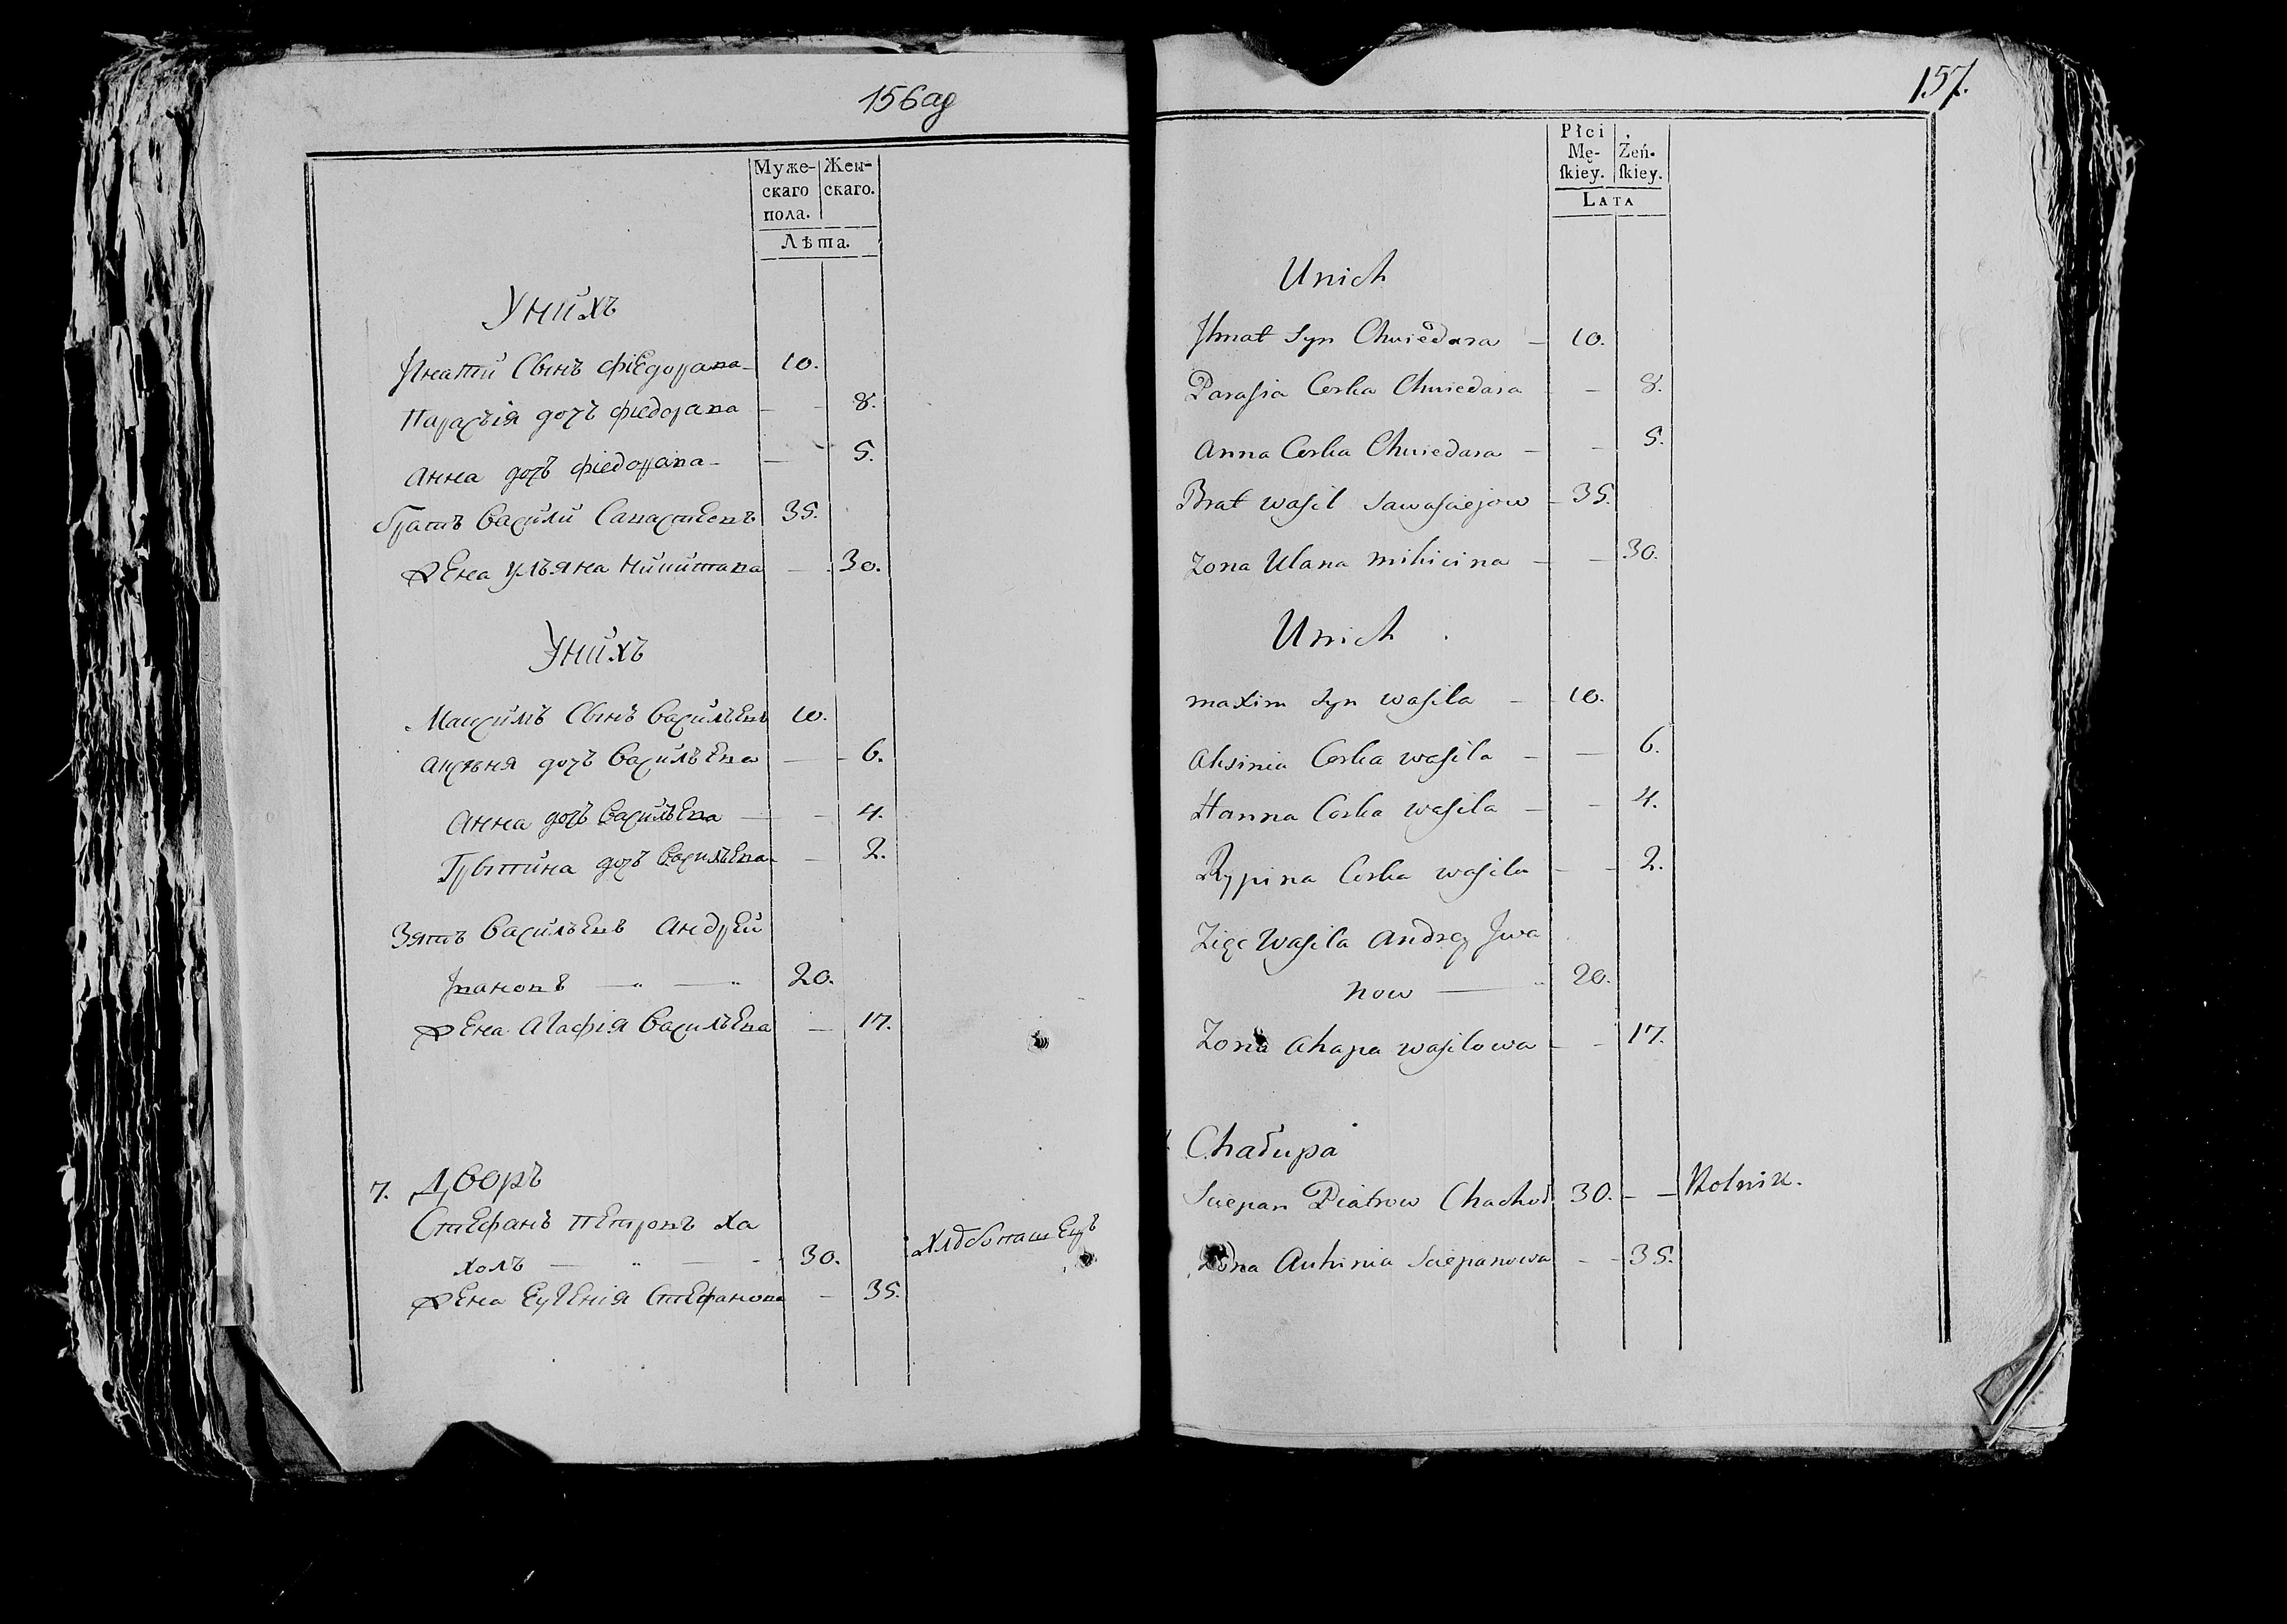 156 об
Муже-
скаго
пола.
Жен-
скаго.
Лѣта.
Унихъ
Игнатий Сынъ фіедорава 10.
Парасъія дочъ фіедорава 8.
Анна дочъ фіедорава 5.
братъ Василий Савастеевъ 35.
жена Ульяна Никитава 30.
Унихъ
Максимъ Сынъ Васильевъ 10.
Аксѣня дочъ Васильева 6.
Анна дочъ Васильева 4.
дочъ Васильева 2.
Зять Васильевъ Андрей
Ивановъ 20.
жена Агафія Васильева 17.
7. Дворъ
Стефанъ Петровъ Ха
холъ 30. Хлѣбопашецъ
жена Евгенія Стефанова 35.
157.
Płci
Mę-
skiey.
Żeń-
skiey.
LATA
Unich
Ihnat Syn Chwiedara 10.
Parasia Corka Chwiedara 8.
Anna Corka Chwiedara 5.
Brat Wasil Sawasciejow 35.
Zona Ulana Mikicina 30.
Unich
Maxim Syn Wasila 10.
Aksinia Corka Wasila 6.
Hanna Corka Wasila 4.
Rypina Corka Wasila 2.
Zięc Wasila Andrey Iwa
now 20.
Zona Ahapa Wasilowa 17.
Chałupa
Sciepan Piatrow Chachoł 30. Rolnik.
Zona Auhinia Sciepanowa 35.